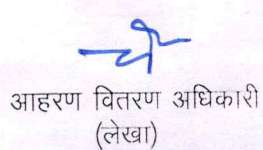 आहरण वितरण अधिकारी
(लेखा)